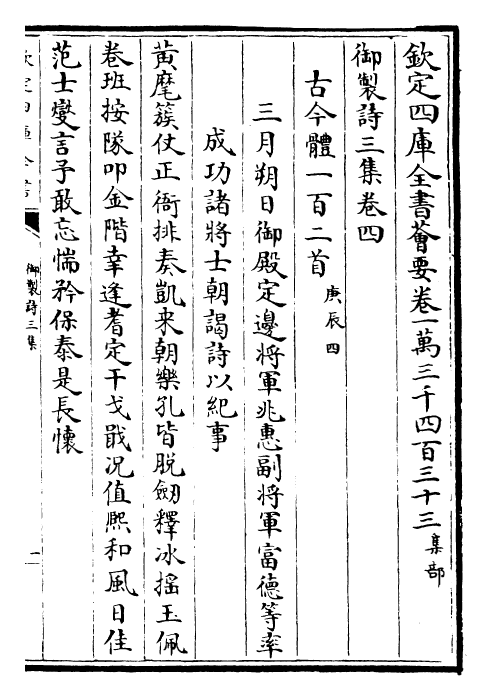 欽定四庫全書薈要卷一萬三千四百三十三集部
御製詩三集卷四
古今體一百二首庚辰四
三月朔日御殿定邊將軍兆惠副將軍富德等率
成功諸將士朝謁詩以紀事
黃麾簇仗正衙排奏凱来朝樂孔皆脱劒釋冰搖玉佩
卷班按隊叩金階幸逢耆定干戈戢况值熙和風日佳
范士燮言予敢忘惴矜保泰是長懷
欽定四庫全書
御製詩三集
一